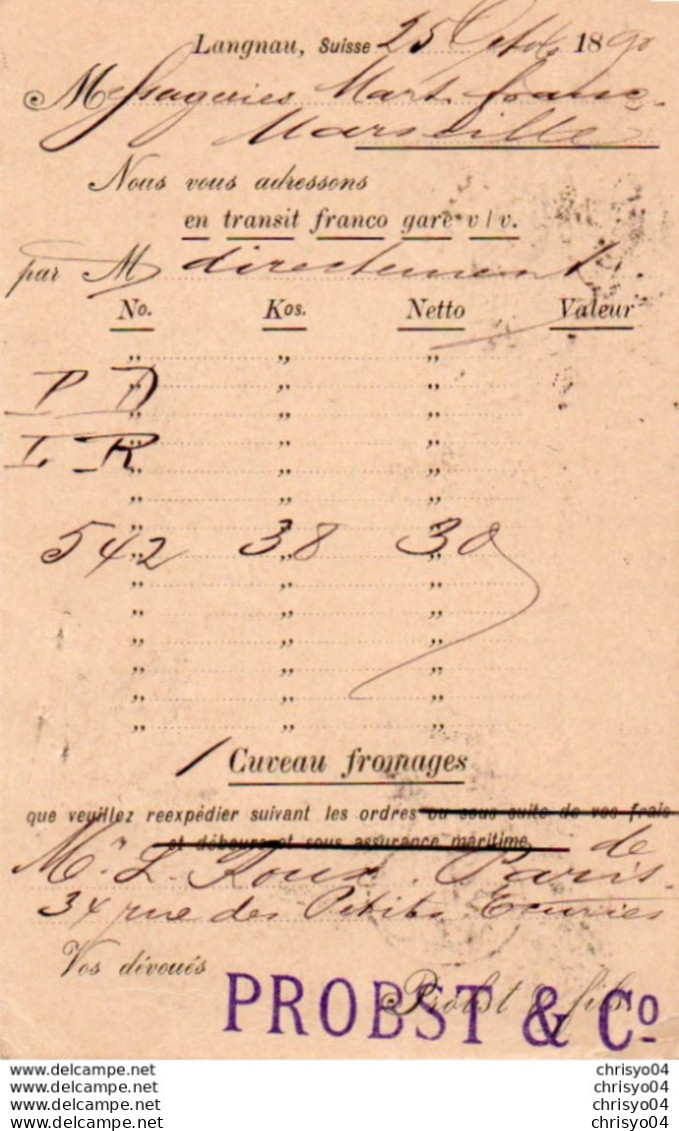 Langnau, Suisse 25 Octob 1890
Messageries Mart. franc.
Marseille
Nous vous adressons
en transit franco gare v/v.
par M directement
No. Kos. Netto Valeur
„ „ „
„ „ „
P D
„ „ „
„ „ „
I R
„ „ „
„ „ „
„ „ „
542 38 30
„ „ „
„ „ „
„ „ „
„ „ „
„ „ „
„ „ „
1 Cuveau fromages
que veuillez reexpédier suivant les ordres ou sous suite de vos frais
et débours et sous assurance maritime. de
Mr. L. Roux. Paris.
34 rue des Petits Ecuries
Vos dévoués
Probst & fils
PROBST & Co
www.delcampe.net chrisyo04
www.delcampe.net chrisyo04
www.delcampe.net chrisyo04
www.delcampe.net chrisyo04